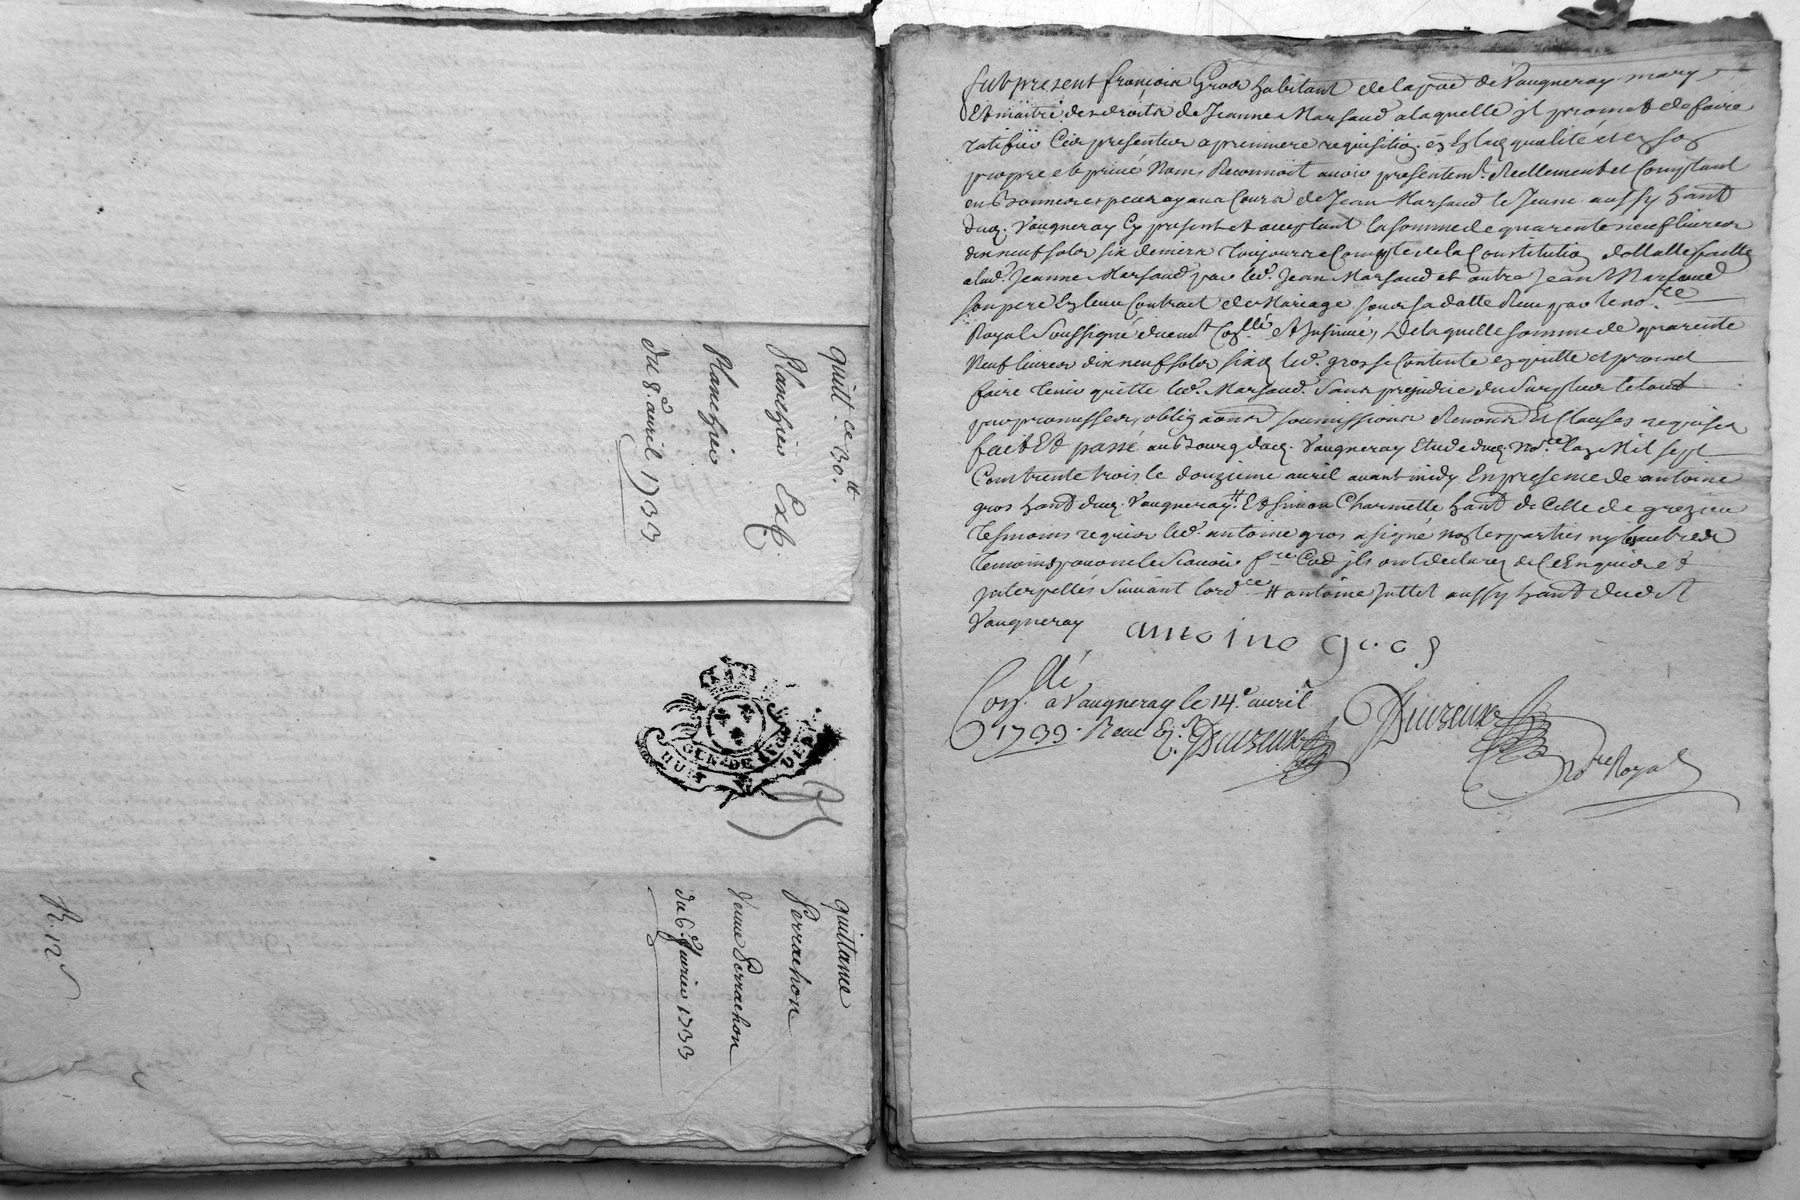 quitt.ce 30.tt
Planchieu Ex
Planchieu
du 8.e avril 1733
GEN. DE
quittance
Perrachon
veuve Perrachon
du 6.e fevrier 1733
R. 12 s
fut present françois Gros habitant de la par de Vaugneray mary
Et maitre des droits de Jeanne Marsaud a laquelle jl promet de faire
ratifier Ces presentes a premiere requisitio. en lad qualité et en son
propre et privé Nom, Reconnoit avoir presentem.t Reellement et Comptant
en Bonnes especes ayant Cours de Jean Marsaud le Jeune aussy habt
dud. Vaugneray Cy present et acceptant la somme de quarente neuf livres
dix neuf sols six deniers toujours a Compte de la Constitutio dottalle faitte
a lad. Jeanne Marsaud par led. Jean Marsaud et autre Jean Marsaud
son pere En leur Contrait de Mariage sous sa datte Reçu par le no.re
Royal Soussigné duem.t Con.llé Et Insinué, De laquelle somme de quarente
Neuf livres dix neuf sols six d led. gros se Contente en quitte et promet
faire tenir quitte led. Marsaud. Sans prejudice du Surplus le tout
par promesses, obligaons soumissions Renonce Et Clauses requises
fait Et passé au Bourg dud. Vaugneray Etude dud. No.re Lan Mil sept
Cent trente trois le douzieme avril avant midy En presence de antoine
gros habt dud. Vaugneray # Et Simon Charmette habt de Celle de grezieu
tesmoins requis led. antoine gros a signé nos les parties ny l'autre des
temoins pour ne le Scavoir f.re Co.e jls ont declarez de Ce Enquis et
jnterpellés Suivant lord.ce # antoine Juttet aussy habt dudit
Vaugneray
antoine gros
Con.llé a Vaugneray le 14.e avril
1733. Recu
No.re Royal